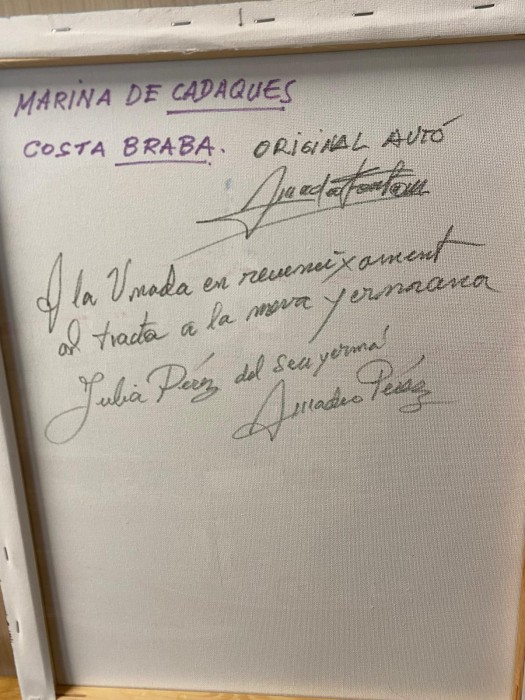 MARINA DE CADAQUES
COSTA BRABA. ORIGINAL AUTÓ
A la Unada en reveneixament
al tracta a la meva yermana
Julia Peréz del seu yermá
Amadeo Peréz